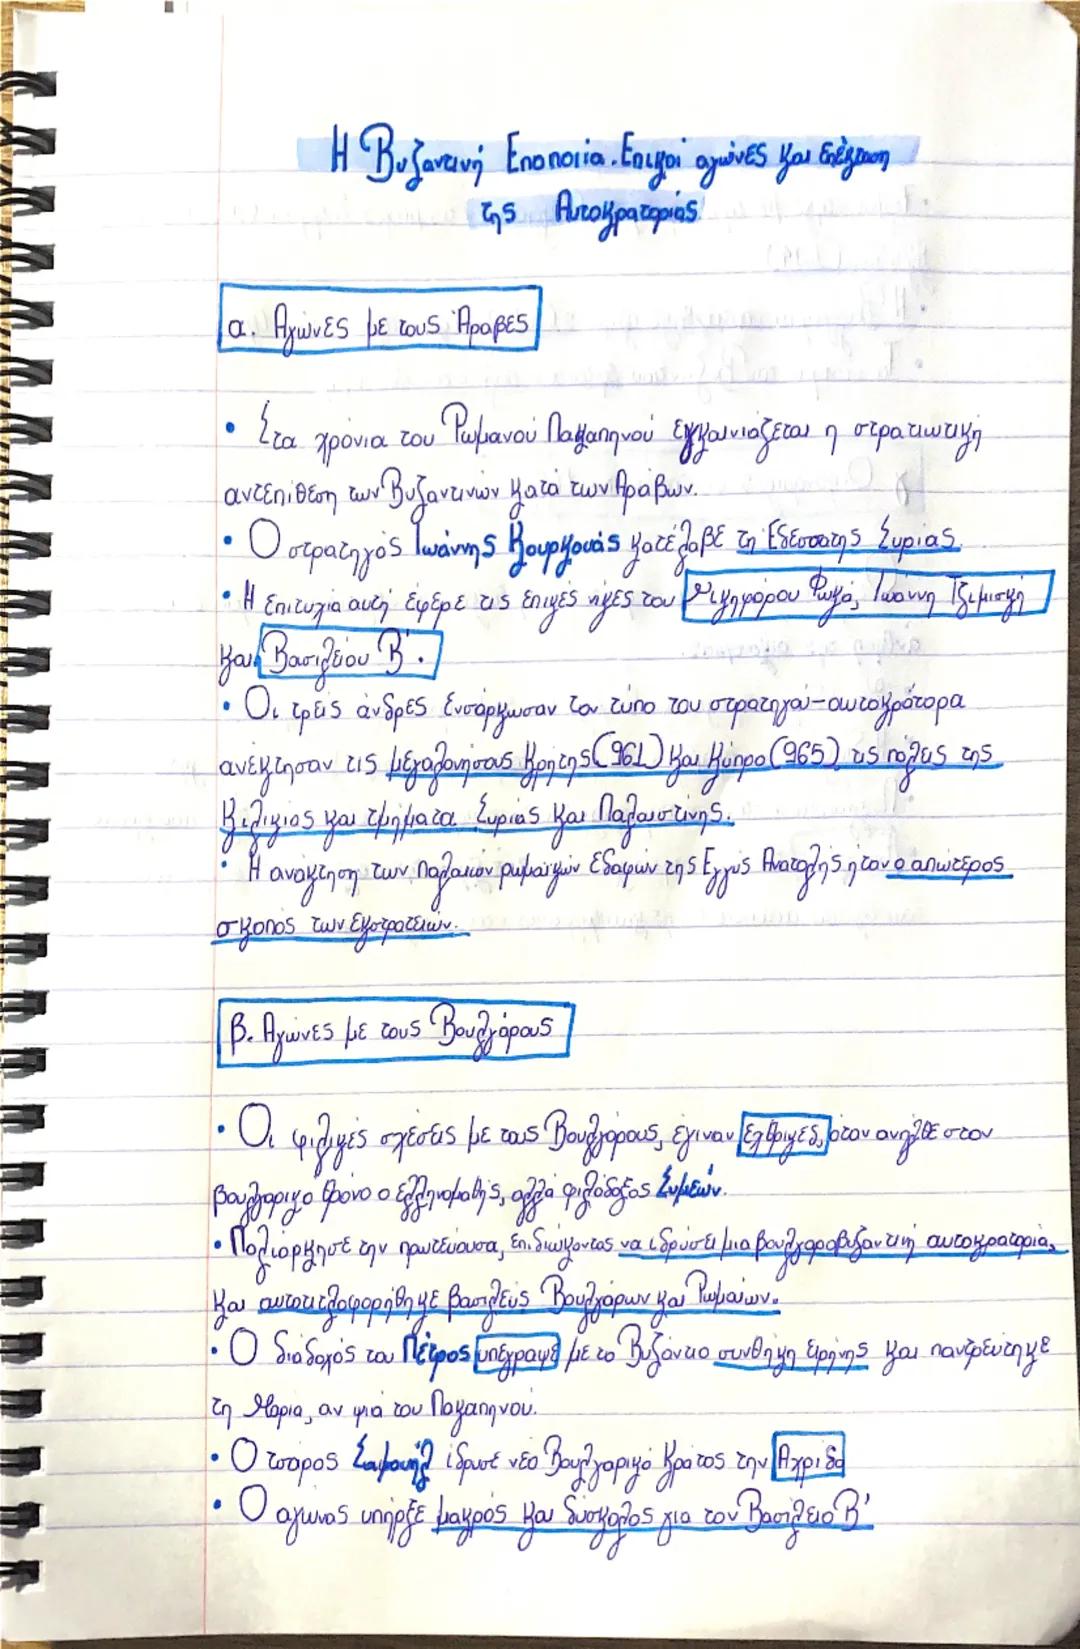 Η Βυζαντινή Εποποιία. Επικοί αγώνες και επέκταση
της Αυτοκρατορίας
α. Αγώνες με τους Άραβες
• Στα χρόνια του Ρωμανού Λακαπηνού εγκαινιάζεται η στρατιωτική
αντεπίθεση των Βυζαντινών κατά των Αράβων.
• Ο στρατηγός Ιωάννης Κουρκουάς κατέλαβε τη Εδεσσατης Συρίας.
• Η επιτυχία αυτή έφερε τις επικές νίκες του Νικηφόρου Φωκά, Ιωάννη Τζιμισκή
και Βασιλείου Β'.
• Οι τρεις άνδρες ενσάρκωσαν τον τύπο του στρατηγού-αυτοκράτορα
ανέκτησαν τις μεγαλονήσους Κρήτης (961) και Κύπρο (965), τις πόλεις της
Κιλικίας και τμήματα Συρίας και Παλαιστίνης.
• Η ανάκτηση των παλαιών ρωμαϊκών εδαφών της Εγγύς Ανατολής ήταν ο απώτερος
σκοπός των εκστρατειών.
β. Αγώνες με τους Βουλγάρους
• Οι φιλικές σχέσεις με τους Βουλγάρους, έγιναν όταν ανήλθε στον
βουλγαρικό θρόνο ο ελληνομαθής, αλλά φιλόδοξος Συμεών.
• Πολιόρκησε την πρωτεύουσα, επιδιώκοντας να ιδρύσει μια βουλγαροβυζαντινή αυτοκρατορία,
και αυτοτιτλοφορήθηκε βασιλεύς Βουλγάρων και Ρωμαίων.
• Ο διάδοχός του Πέτρος υπέγραψε με το Βυζάντιο συνθήκη ειρήνης και παντρεύτηκε
τη Μαρία, αν ψιά του Λακαπηνού.
• Ο τσάρος Σαμουήλ ίδρυσε νέο Βουλγαρικό Κράτος την Αχρίδα
• Ο αγώνας υπήρξε μακρός και δύσκολος για τον Βασίλειο Β'